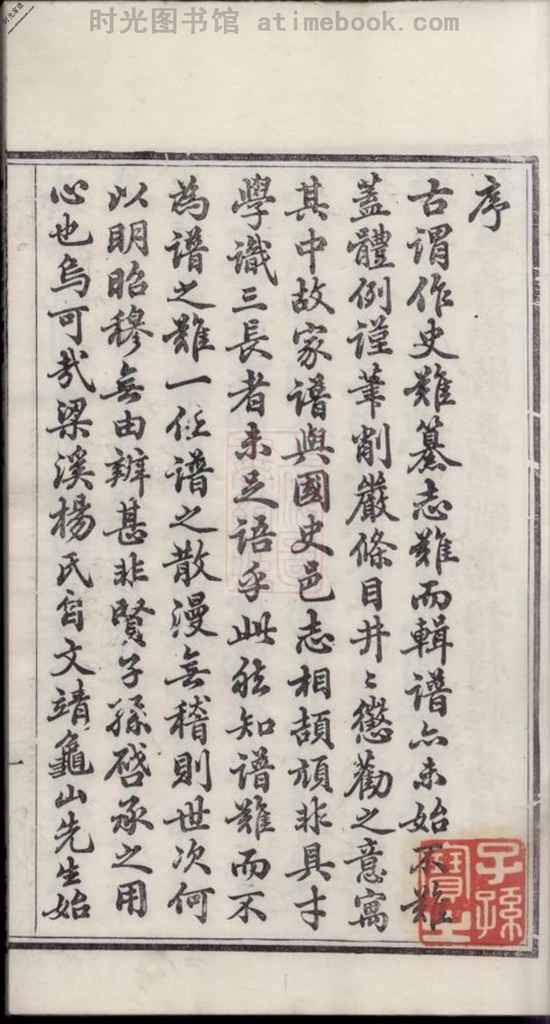 时光图书馆 atimebook.com
序
古謂作史難纂志難而輯譜亦未始不難
蓋體例謹筆削嚴條目井〻懲勸之意寓
其中故家譜與國史邑志相頡頏非具才
學識三長者未足語乎此然知譜難而不
為譜之難一任譜之散漫無稽則世次何
以明昭穆無由辨甚非賢子孫啓承之用
心也烏可哉梁溪楊氏自文靖龜山先生始
子孫
寶之
一